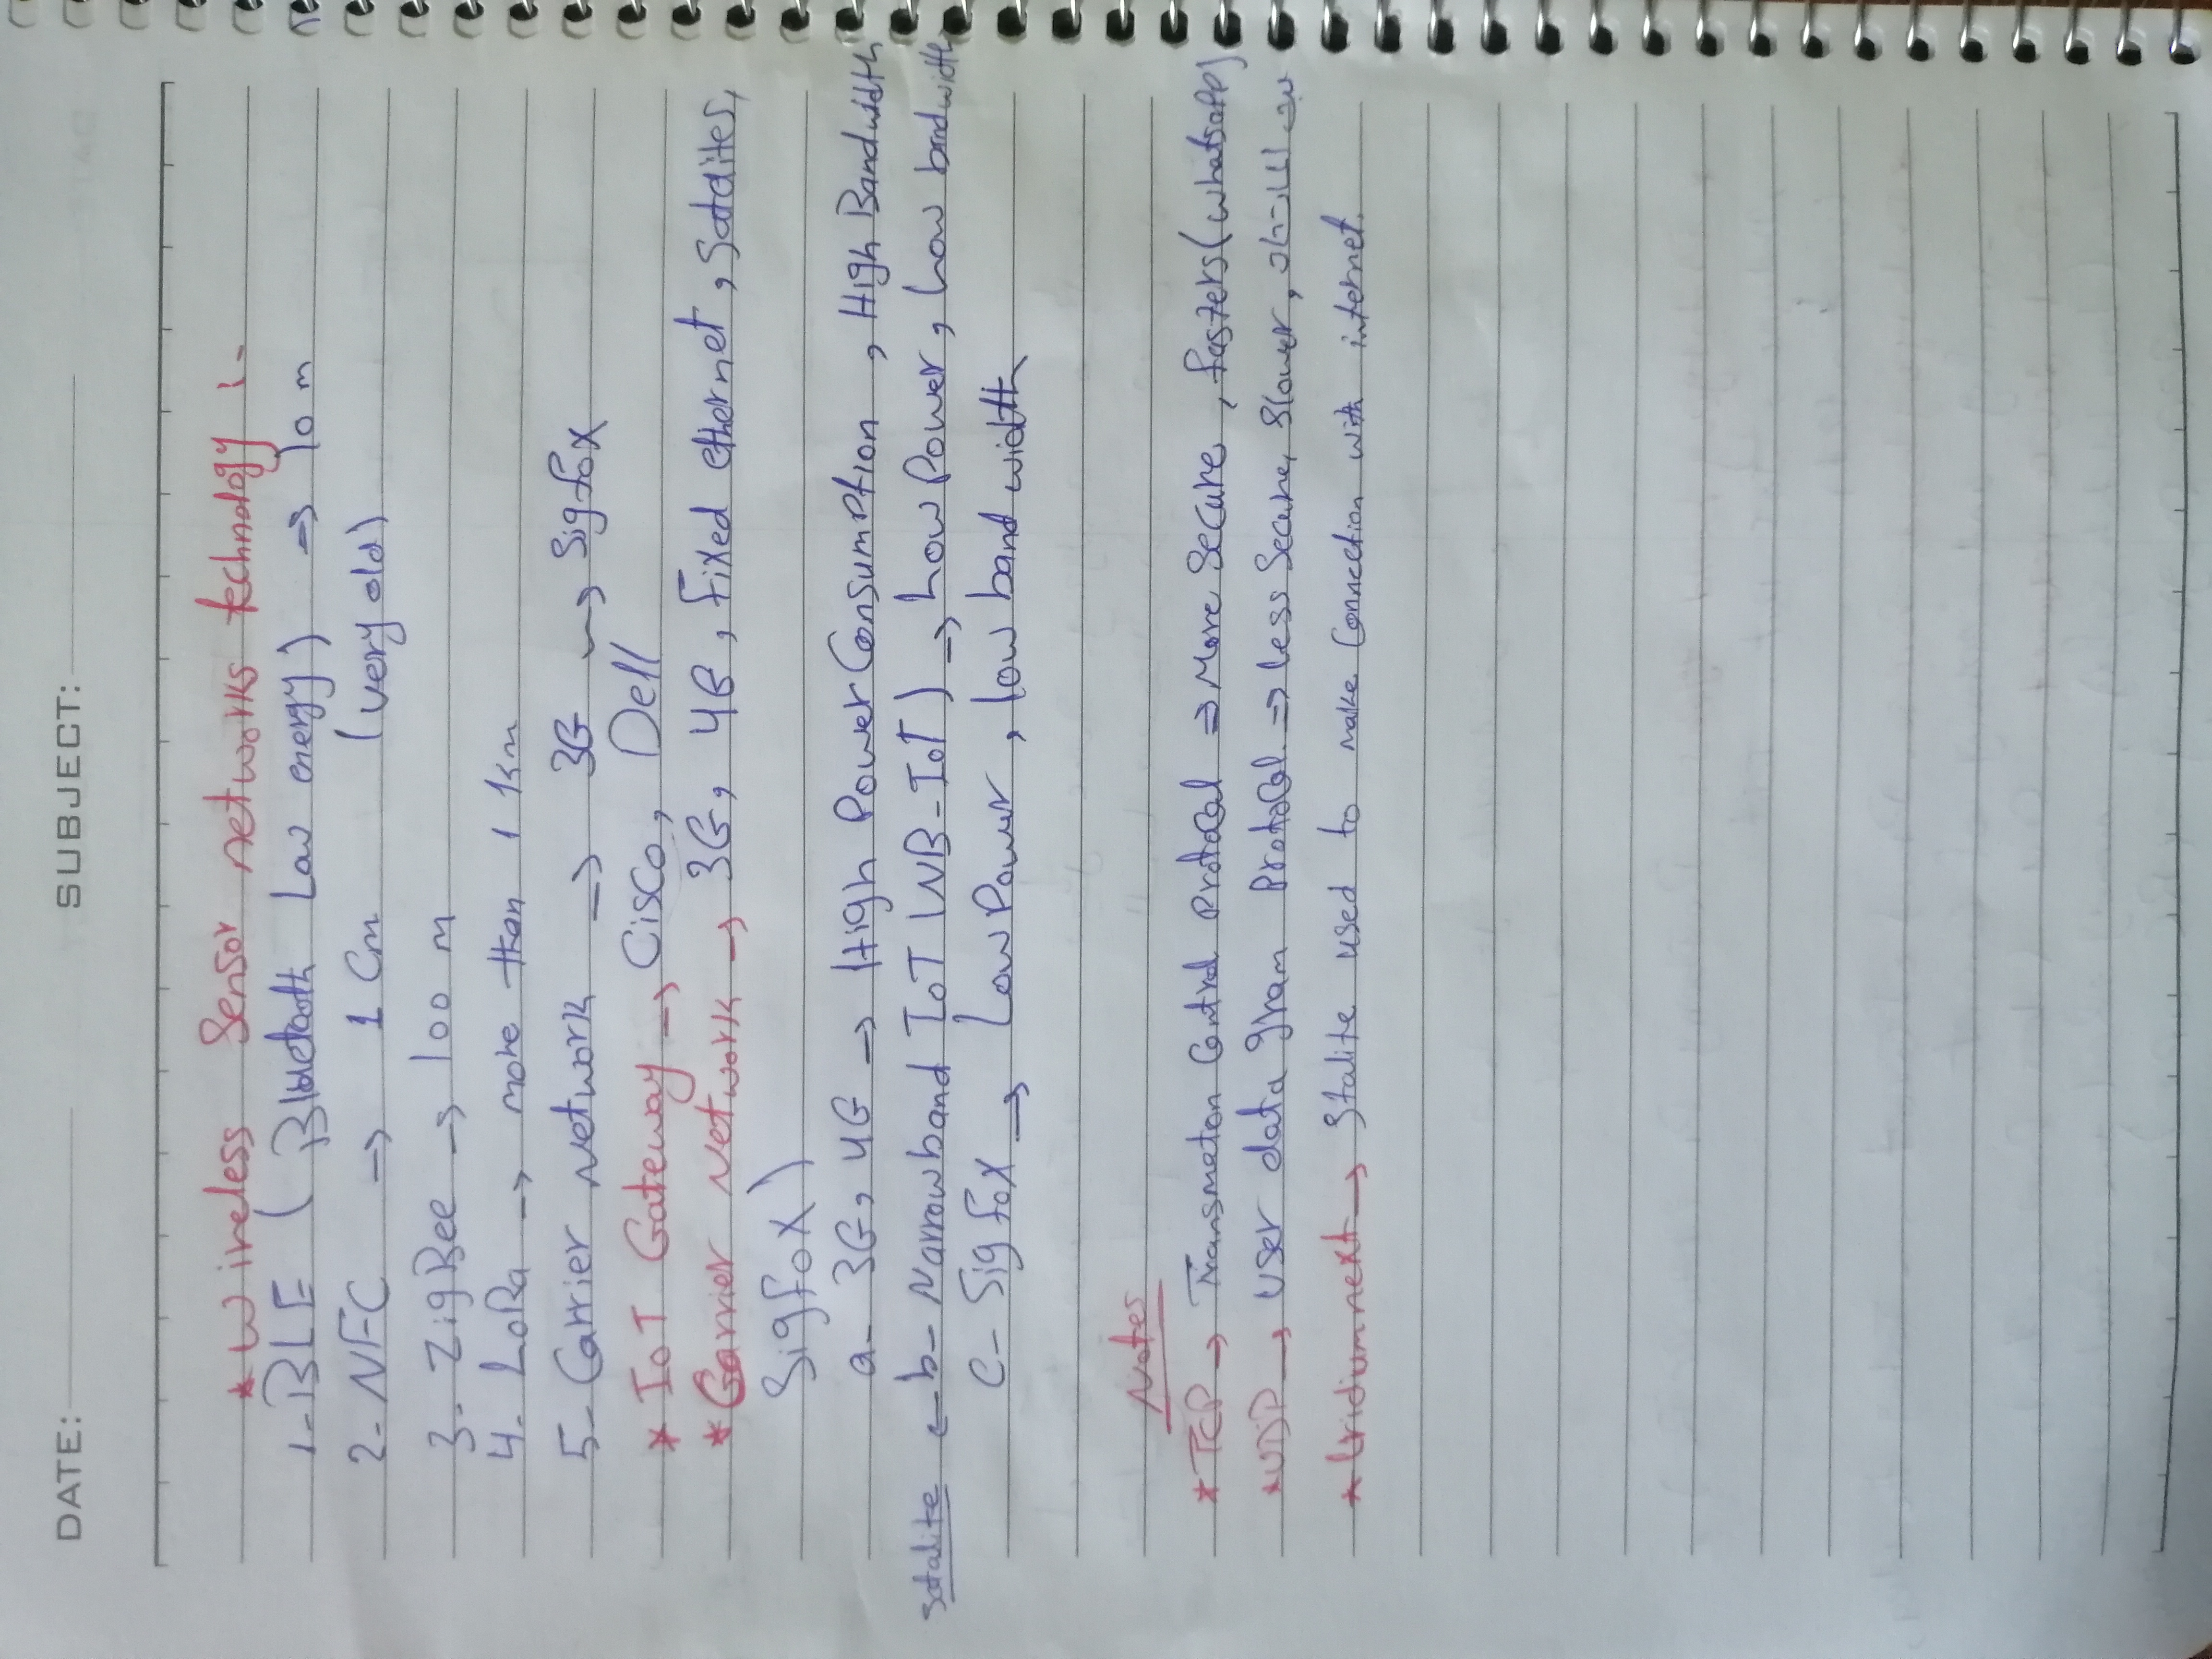 DATE: SUBJECT:
* Wireless Sensor networks technology :-
1- BLE ( Bluetooth Low energy ) → 10 m
2- NFC → 1 Cm (very old)
3- ZigBee → 100 m
4- LoRa → more than 1 Km
5- Carrier Network → 3G → Sigfox
* IoT Gateway → Cisco, Dell
* Carrier Network → 3G, 4G, Fixed ethernet, Satalites,
Sigfox )
a- 3G, 4G → High Power Consumption , High Bandwidth
satalite ← b- Narrowband IoT (NB-IoT) → Low Power, Low bandwidth
c- Sigfox → Low Power , low band width
Notes
* TCP → Transmeton Control Protocol ⇒ More Secure , fasters (whatsapp)
* UDP → User data gram Protocol ⇒ less Secure, Slower,
* Iridium next → Stalite used to make Connection with internet.